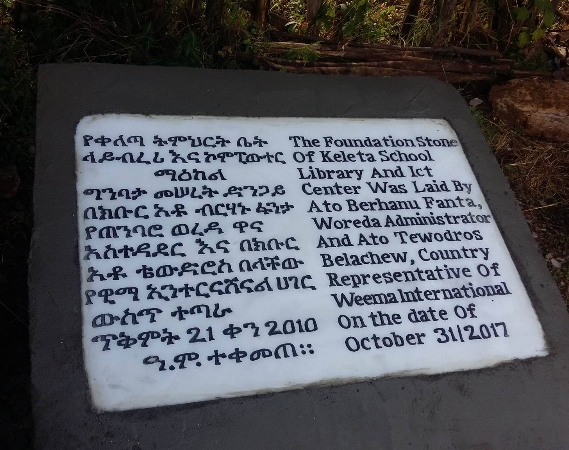 የቀለጣ ትምህርት ቤት
ላይብረሪ እና ኮምፒውተር
ማዕከል
ግንባታ መሠረት ዳንጋይ
በክቡር አቶ ብርሃኑ ፋንታ
የጠንባሮ ወረዳ ዋና
አስተዳደር እና በክቡር
አቶ ቴውድሮስ በላቸው
የዊማ ኢንተርናሽናል ሀገር
ውስጥ ተጣሪ
ጥቅምት 21 ቀን 2010
ዓ.ም. ተቀመጠ፡፡
The Foundation Stone
Of Keleta School
Library And Ict
Center Was Laid By
Ato Berhanu Fanta,
Woreda Administrator
And Ato Tewodros
Belachew, Country
Representative Of
Weema International
On the date Of
October 31/2017